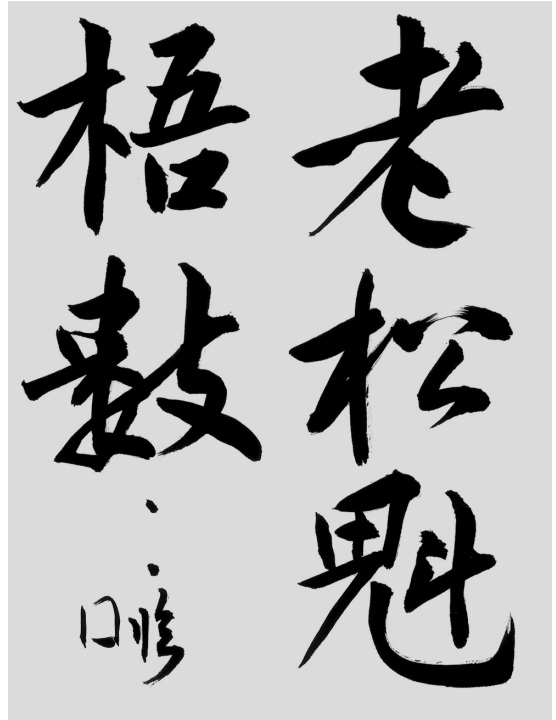 老松魁
梧數